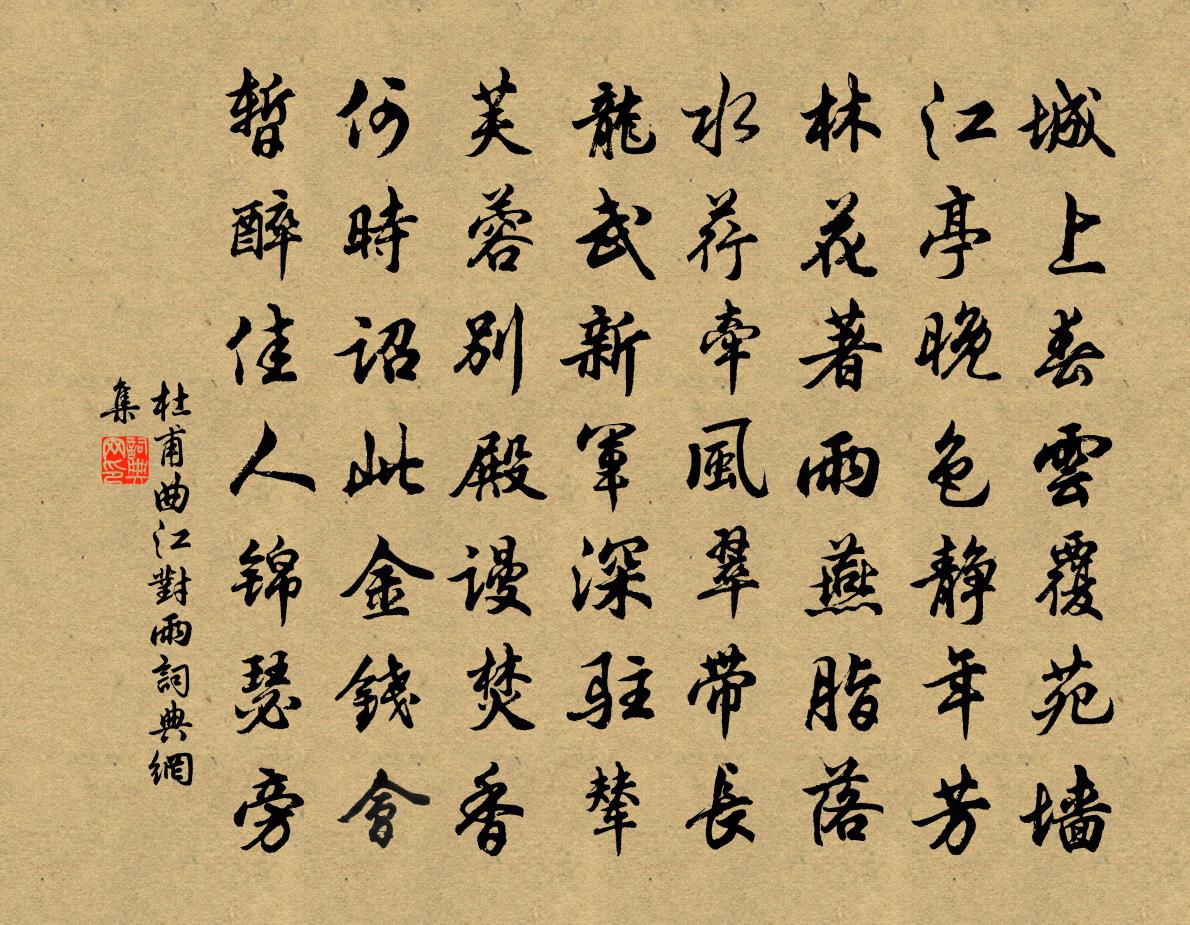 城上春雲覆苑墻
江亭晚色靜年芳
林花著雨燕脂落
水荇牽風翠帶長
龍武新軍深駐輦
芙蓉別殿謾焚香
何時詔此金錢會
暫醉佳人錦瑟旁
杜甫曲江對雨詞典網
集
詞典网印